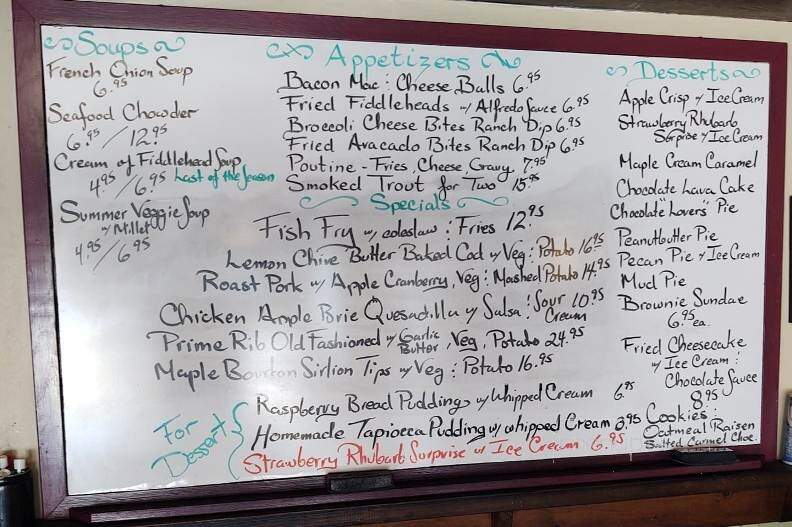 Soups
French Onion Soup
6.95
Seafood Chowder
6.95/12.95
Cream of Fiddlehead Soup
4.95/6.95 Last of the Season
Summer Veggie Soup
w/ Millet
4.95/6.95
Appetizers
Bacon Mac & Cheese Balls 6.95
Fried Fiddleheads w/ Alfredo Sauce 6.95
Broccoli Cheese Bites Ranch Dip 6.95
Fried Avacado Bites Ranch Dip 6.95
Poutine - Fries, Cheese, Gravy 7.95
Smoked Trout for Two 15.95
Specials
Fish Fry w/ coleslaw & Fries 12.95
Lemon Chive Butter Baked Cod w/ Veg & Potato 16.95
Roast Pork w/ Apple Cranberry, Veg & Mashed Potato 14.95
Chicken Apple Brie Quesadilla w/ Salsa & Sour Cream 10.95
Prime Rib Old Fashioned w/ Garlic Butter, Veg, Potato 24.95
Maple Bourbon Sirlion Tips w/ Veg & Potato 16.95
For Dessert
Raspberry Bread Pudding w/ Whipped Cream 6.95
Homemade Tapiocca Pudding w/ whipped Cream 3.95
Strawberry Rhubarb Surprise w/ Ice Cream 6.95
Desserts
Apple Crisp w/ Ice Cream
Strawberry Rhubarb
Surprise w/ Ice Cream
Maple Cream Caramel
Chocolate Lava Cake
Chocolate "Lovers" Pie
Peanutbutter Pie
Pecan Pie w/ Ice Cream
Mud Pie
Brownie Sundae
6.95 ea.
Fried Cheesecake
w/ Ice Cream &
Chocolate Sauce
8.95
Cookies:
Oatmeal Raisen
Salted Carmel Choc.